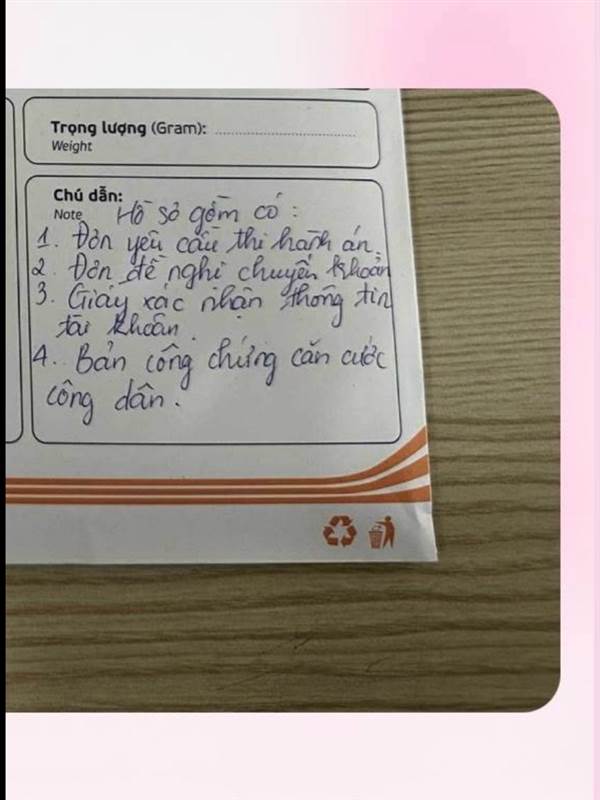 Trọng lượng (Gram): ........................
Weight
Chú dẫn:
Note Hồ sơ gồm có :
1. Đơn yêu cầu thi hành án.
2. Đơn đề nghị chuyển khoản
3. Giấy xác nhận thông tin
tài khoản.
4. Bản công chứng căn cước
công dân.